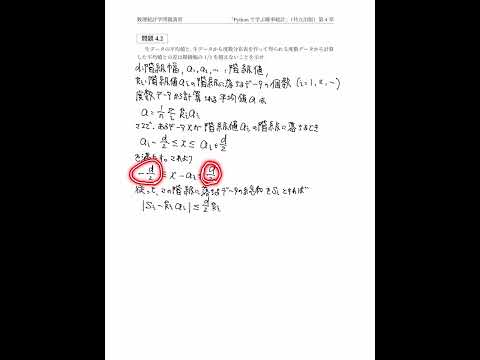 数理統計学問題演習 「Pythonで学ぶ確率統計」(共立出版) 第4章
問題 4.2
生データの平均値と、生データから度数分布表を作って得られる度数データから計算
した平均値との差は階級幅の1/2を超えないことを示せ
d:階級幅, a₁, a₂, …:階級値,
階級値aᵢの階級に落ちるデータの個数 (i=1, 2, …)
度数データから計算される平均値aは
a = 1/n Σᵢ kᵢaᵢ
ここで、あるデータxが階級値aᵢの階級に落ちるとき
aᵢ - d/2 ≤ x ≤ aᵢ + d/2
を満たす。これより
-d/2 ≤ x - aᵢ ≤ d/2
従って、この階級に落ちるデータの総和をSᵢとすれば
|Sᵢ - kᵢaᵢ| ≤ d/2 kᵢ